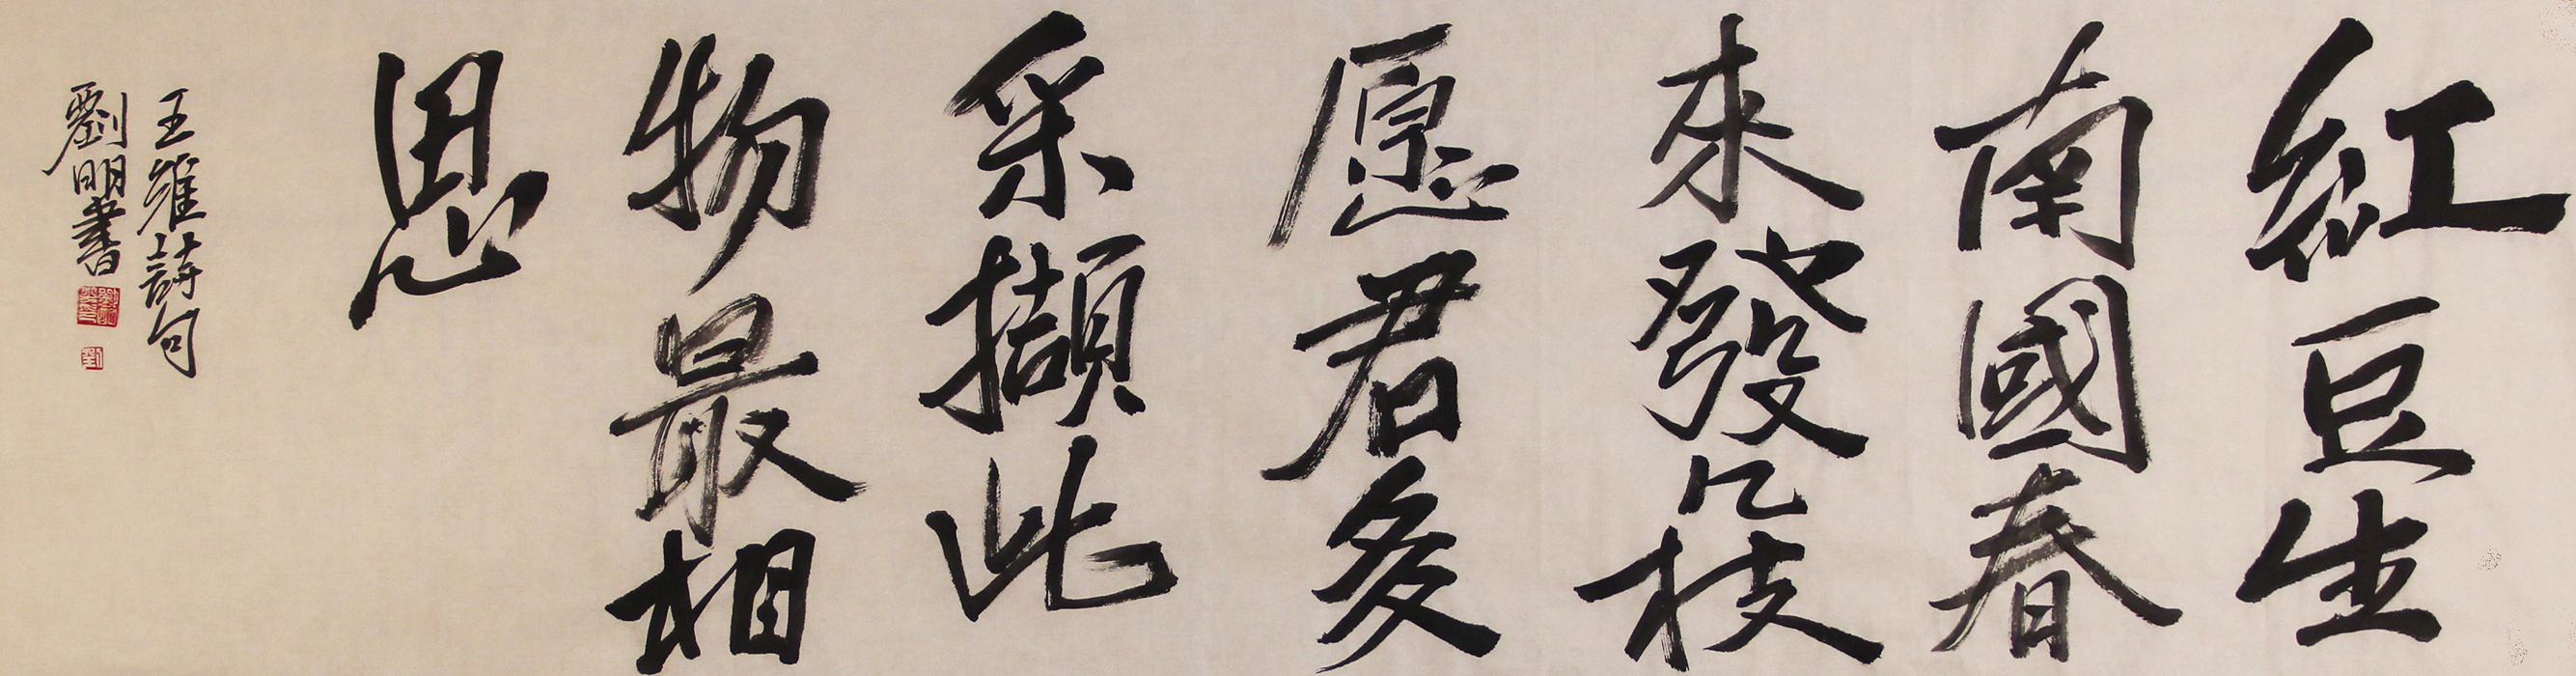 紅豆生
南國春
來發几枝
愿君多
采擷此
物最相
思
王維詩句
劉明書